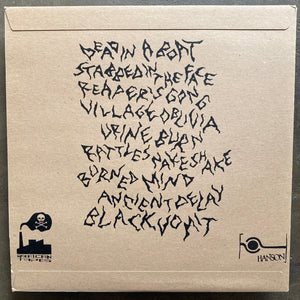 DEAD IN A BOAT
STABBED IN THE FACE
REAPER'S GONG
VILLAGE OBLIVIA
URINE BURN
RATTLESNAKE SHAKE
BURNED MIND
ANCIENT DELAY
BLACK VOMIT
AMERICAN TAPES
HANSON